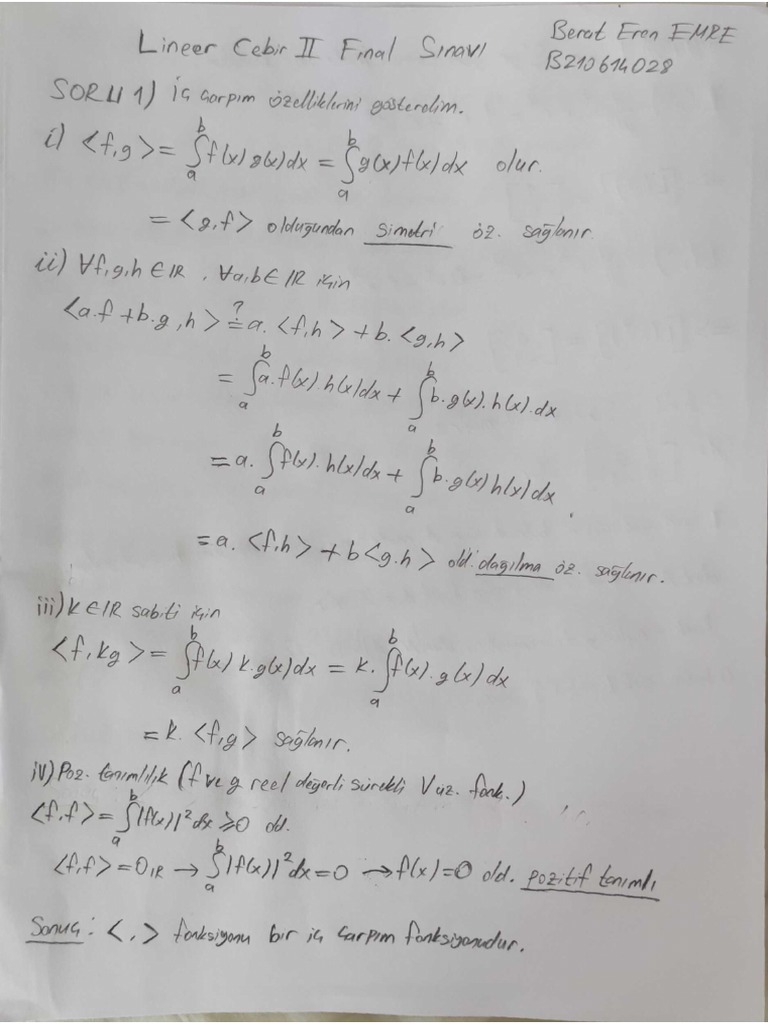 Lineer Cebir II Final Sınavı
Berat Eren EMRE
B210614028
SORU 1) İç çarpım özelliklerini gösterelim.
i) <f,g> = ∫_a^b f(x) g(x) dx = ∫_a^b g(x) f(x) dx olur.
= <g,f> olduğundan simetri öz. sağlanır
ii) ∀f,g,h ∈ IR, ∀a,b ∈ IR için
<a.f + b.g, h> ?= a. <f,h> + b. <g,h>
= ∫_a^b a.f(x).h(x)dx + ∫_a^b b.g(x).h(x).dx
= a. ∫_a^b f(x).h(x)dx + ∫_a^b b.g(x)h(x)dx
= a. <f,h> + b<g.h> old. dağılma öz. sağlanır.
iii) k ∈ IR sabiti için
<f,kg> = ∫_a^b f(x) k.g(x)dx = k. ∫_a^b f(x).g(x)dx
= k. <f,g> sağlanır.
iv) Poz. tanımlılık (f ve g reel değerli sürekli V uz. fonk.)
<f,f> = ∫_a^b |f(x)|² dx ≥ 0 old.
<f,f> = 0_IR → ∫_a^b |f(x)|² dx = 0 → f(x) = 0 old. pozitif tanımlı
Sonuç: <,> fonksiyonu bir iç çarpım fonksiyonudur.